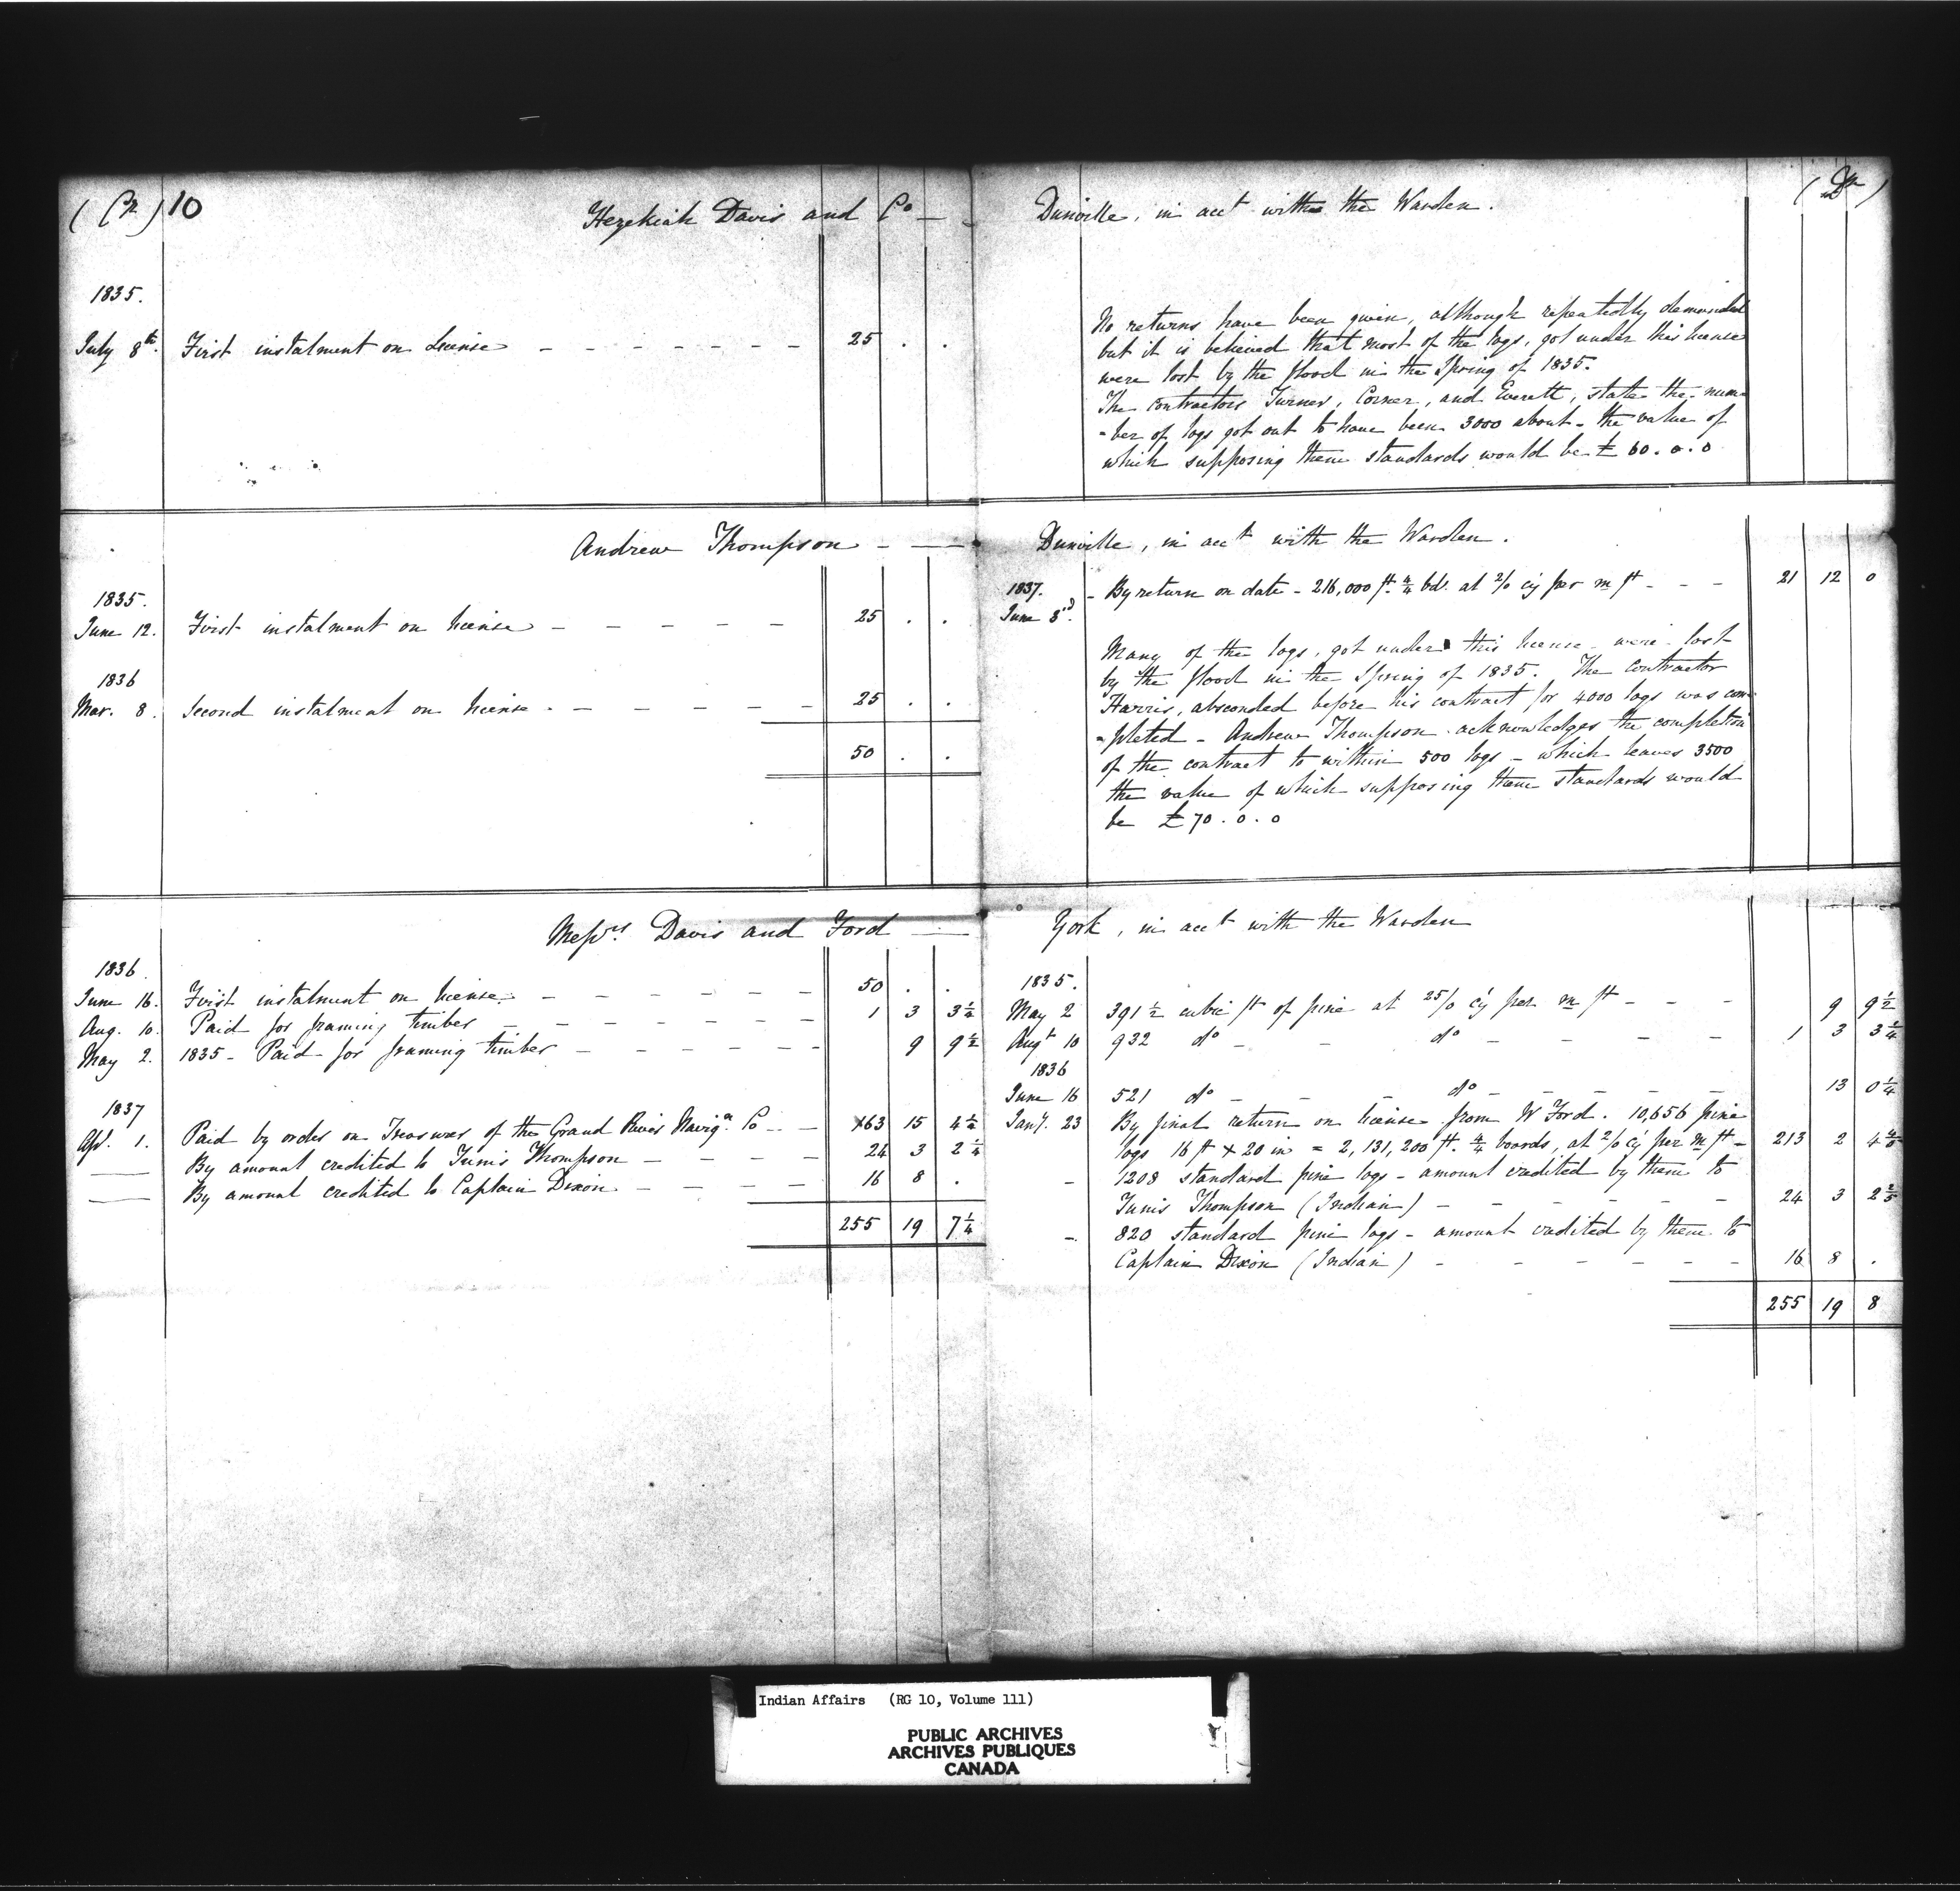 (Cr) 10
Hezekiah Davis and Co —
Dunville, in acct with the Warden.
(Dr)
1835.
July 8th. First instalment on License - - - - - - - 25 . .
No returns have been given, although repeatedly demanded
but it is believed that most of the logs, got under this license
were lost by the flood in the Spring of 1835.
The contractors Turner, Corner, and Everett, state the num-
-ber of logs got out to have been 3000 about - the value of
which supposing them standards would be £ 60. 0. 0
Andrew Thompson - —
Dunville, in acct with the Warden.
1835.
June 12. First instalment on license - - - - - 25 . .
1836
Mar. 8. Second instalment on license - - - - - - 25 . .
50 . .
1837.
June 3d. - By return on date - 216,000 ft. 4/4 bds. at 2/0 cy per m ft - - - 21 12 0
Many of the logs, got under this license were lost
by the flood in the Spring of 1835. The contractor
Harris, absconded before his contract for 4000 logs was com-
-pleted - Andrew Thompson acknowledges the completion
of the contract to within 500 logs - which leaves 3500
the value of which supposing them standards would
be £70. 0. 0
Messrs. Davis and Ford —
York, in acct with the Warden
1836.
June 16. First instalment on license - - - - - - 50 . .
Aug. 10. Paid for framing timber - - - - - - - 1 3 3 1/4
May 2. 1835 - Paid for framing timber - - - - - - 9 9 1/2
1837
Apl. 1. Paid by order on Treasurer of the Grand River Navign. Co - - 163 15 4 1/2
— By amount credited to Tunis Thompson - - - - 24 3 2 1/4
— By amount credited to Captain Dixon - - - - - 16 8 .
255 19 7 1/4
1835.
May 2 391 1/2 cubic ft of pine at 25/0 cy per m ft - - - 9 9 1/2
Augt 10 932 do - - do - - - - 1 3 3 1/4
1836
June 16 521 do - do - - - - - 13 0 1/4
Jany. 23 By final return on license from W Ford. 10,656 pine
logs 16 ft x 20 in = 2,131,200 ft. 4/4 boards, at 2/0 cy per m ft - 213 2 4
- 1208 standard pine logs - amount credited by them to
Tunis Thompson (Indian) - - - - - - 24 3 2 2/5
- 820 standard pine logs - amount credited by them to
Captain Dixon (Indian) - - - - - - 16 8 .
255 19 8
Indian Affairs (RG 10, Volume 111)
PUBLIC ARCHIVES
ARCHIVES PUBLIQUES
CANADA